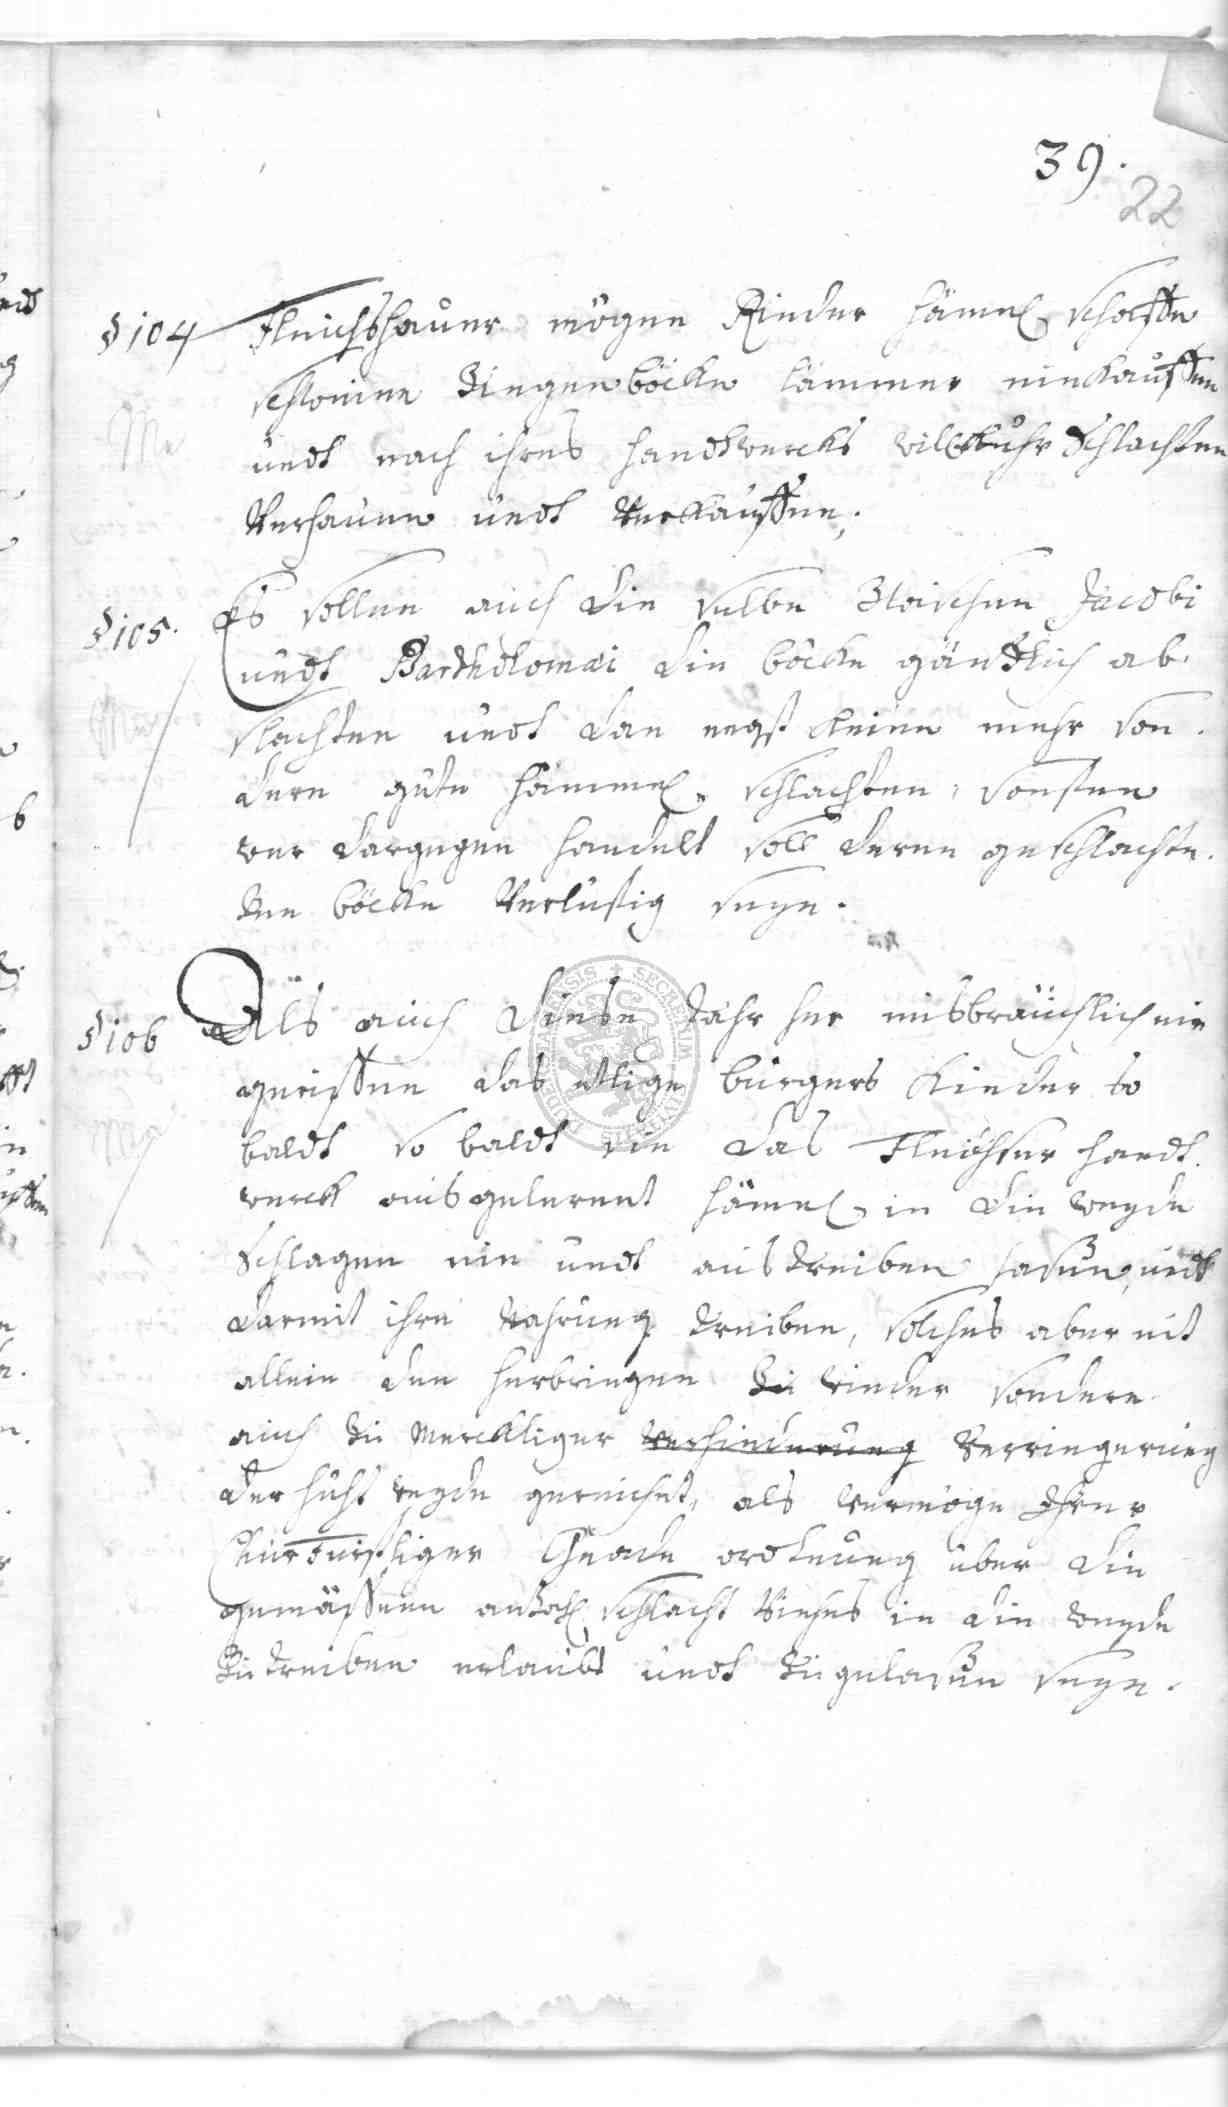 39.
22
§ 104 Fleischhauer mögen Rinder hämel schaffe
schweine Ziegenböcke lämmer einkauffen
undt nach ihres handtwercks willkuhr Schlachten
Verhauen undt Verkauffen.
§ 105. Es sollen auch die selbe Zwischen Jacobi
undt Bartholomæi die böcke gäntzlich ab
slachten undt dan negst keine mehr son
dern gute hämmel schlachten, sonsten
wer dargegen handelt soll deren geschlachte
ten böcke Verlustig seyn.
§ 106 Als auch diese Jahr her misbräuchlich ein
gerissen das etlige bürgers kinder so
baldt so baldt sie das Fleischer handt
werck ausgelernet hämel in die weyde
Schlagen ein undt austreiben lasen, undt
darmit ihre Nahrung treiben, solches aber nit
allein den herbringen zu wieder sondern
auch zu mercklicher Verhinderung Verringerung
der huht weyde gereichet, als Vermöge Ihrer
Churfürstliger Gnade ordenung über die
gemässene anzahl schlacht Viehes in die weyde
zu treiben erlaubt undt zugelasen seye.
SECRETUM